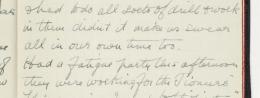 & had to do all sorts of drill & work
in them didn't it make us swear
all in our own time too.
Had a fatigue party this afternoon
they were working for the Pioneers